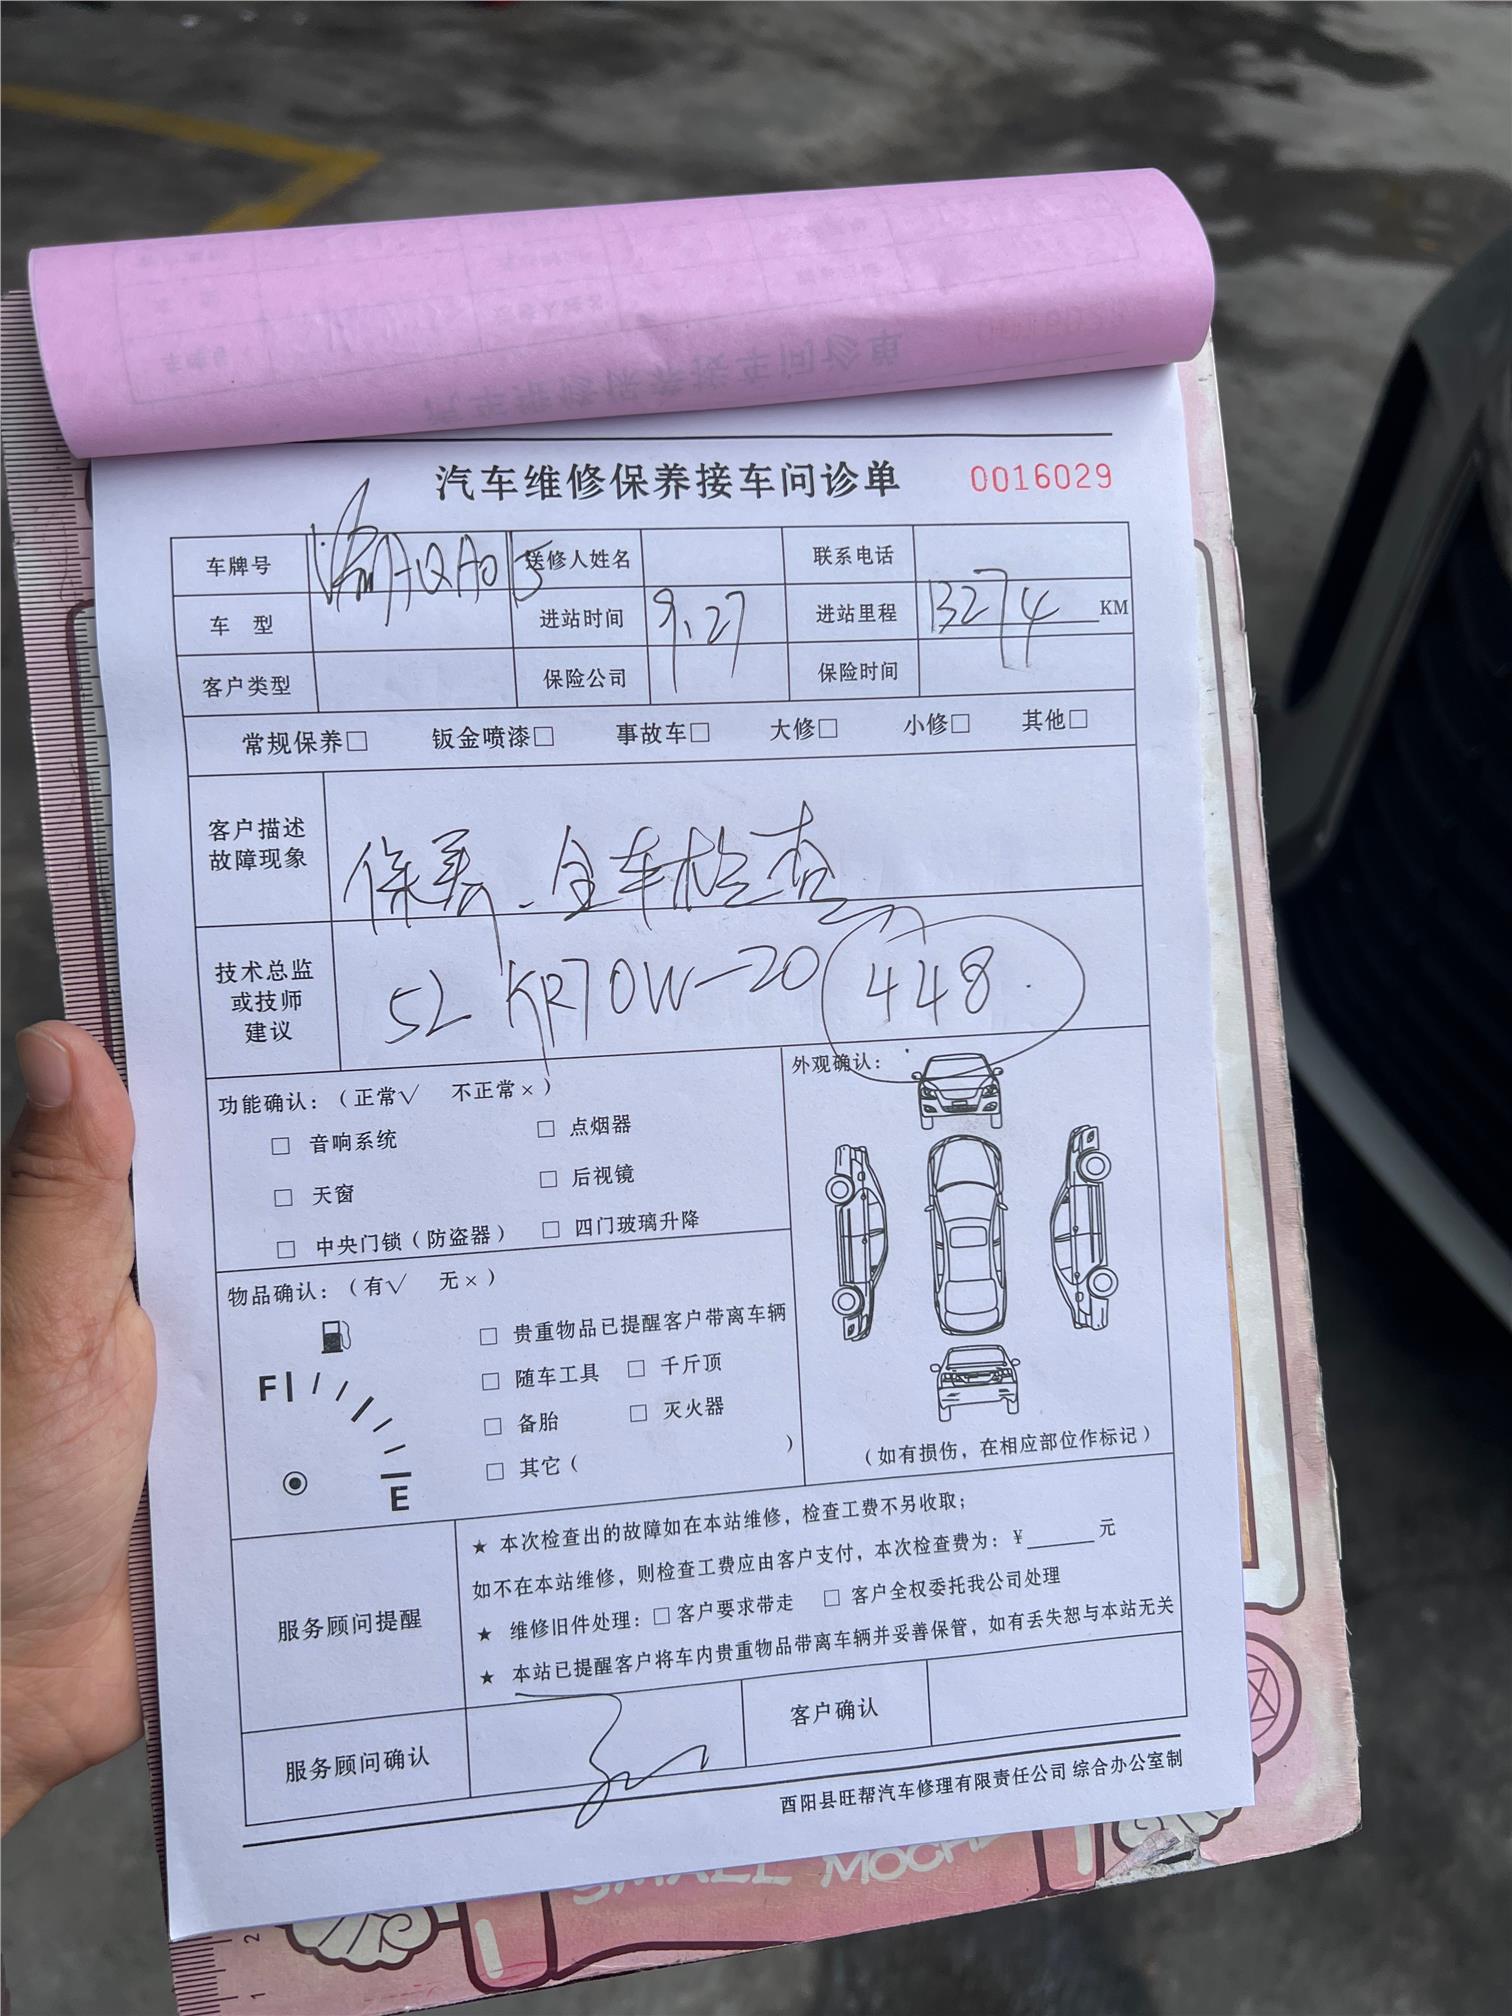 汽车维修保养接车问诊单 0016029
车牌号 渝AQA05 送修人姓名 联系电话
车 型 进站时间 9.27 进站里程 13274 KM
客户类型 保险公司 保险时间
常规保养□ 钣金喷漆□ 事故车□ 大修□ 小修□ 其他□
客户描述
故障现象
保养.全车检查
技术总监
或技师
建议
5L KR7 0W-20 448
功能确认：（正常√ 不正常×）
□ 音响系统 □ 点烟器
□ 天窗 □ 后视镜
□ 中央门锁（防盗器） □ 四门玻璃升降
外观确认：
（如有损伤，在相应部位作标记）
物品确认：（有√ 无×）
F
E
□ 贵重物品已提醒客户带离车辆
□ 随车工具 □ 千斤顶
□ 备胎 □ 灭火器
□ 其它（ ）
服务顾问提醒
★ 本次检查出的故障如在本站维修，检查工费不另收取；
如不在本站维修，则检查工费应由客户支付，本次检查费为：￥______元
★ 维修旧件处理：□客户要求带走 □ 客户全权委托我公司处理
★ 本站已提醒客户将车内贵重物品带离车辆并妥善保管，如有丢失恕与本站无关
服务顾问确认 客户确认
酉阳县旺帮汽车修理有限责任公司 综合办公室制
SMALL
2
1